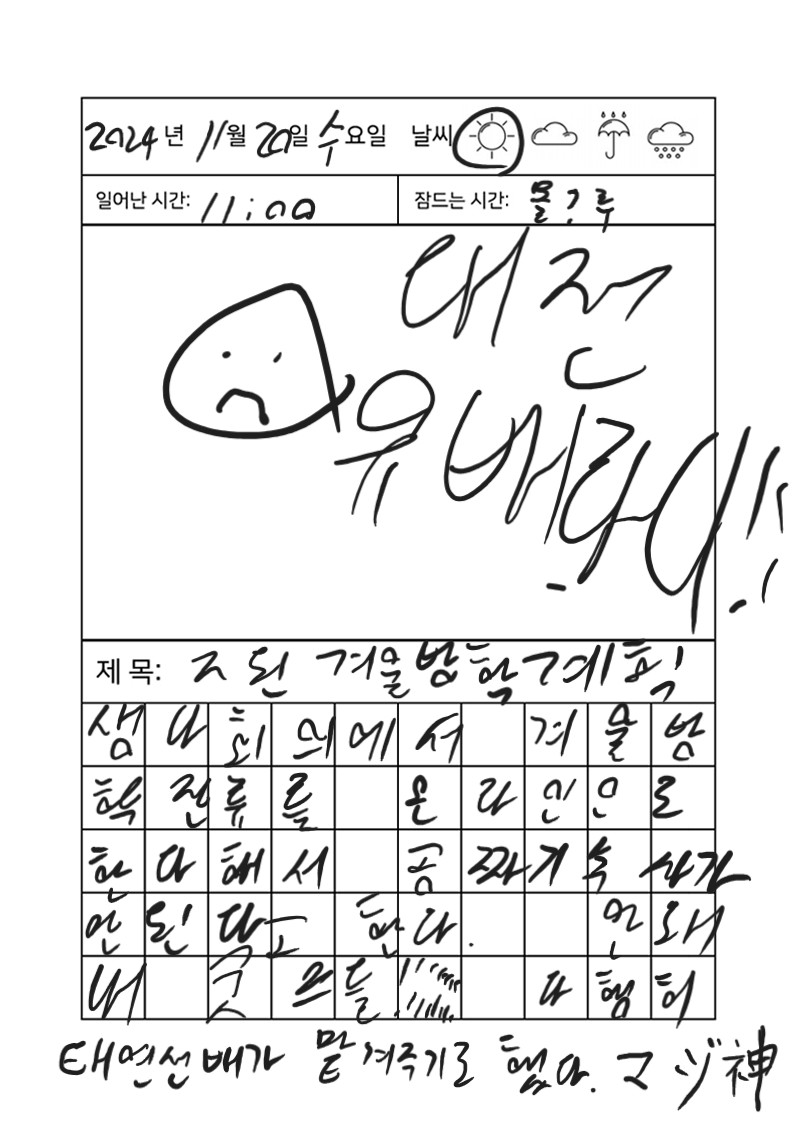 2024년 11월 20일 수요일 날씨
일어난 시간: 11:00 잠드는 시간: 몰?루
대전
유배라니!!
제 목: ㅈ된 겨울방학계획
샘나회의에서 겨울방
학 잔류를 온라인으로
한다해서 공짜기숙사가
안된다고 한다. 원래
내 굿즈들!!
다행히
태연선배가 맡겨주기로 했다. マジ神